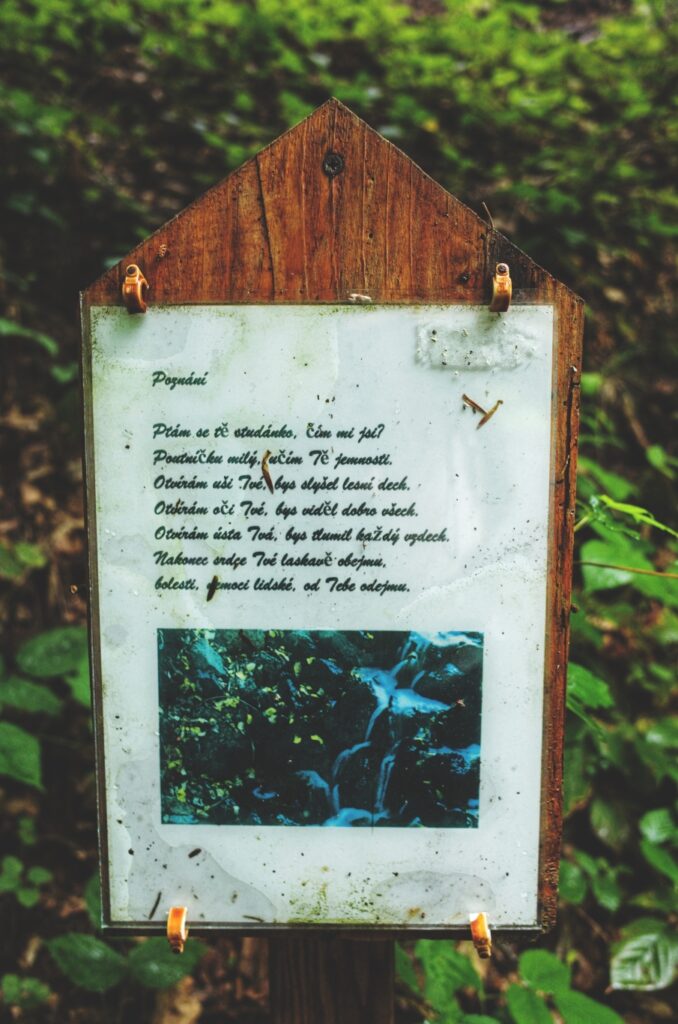 Poznání
Ptám se tě studánko, čím mi jsi?
Poutníčku milý, učím Tě jemnosti.
Otvírám uši Tvé, bys slyšel lesní dech.
Otvírám oči Tvé, bys viděl dobro všech.
Otvírám ústa Tvá, bys tlumil každý vzdech.
Nakonec srdce Tvé laskavě obejmu,
bolesti, nemoci lidské, od Tebe odejmu.